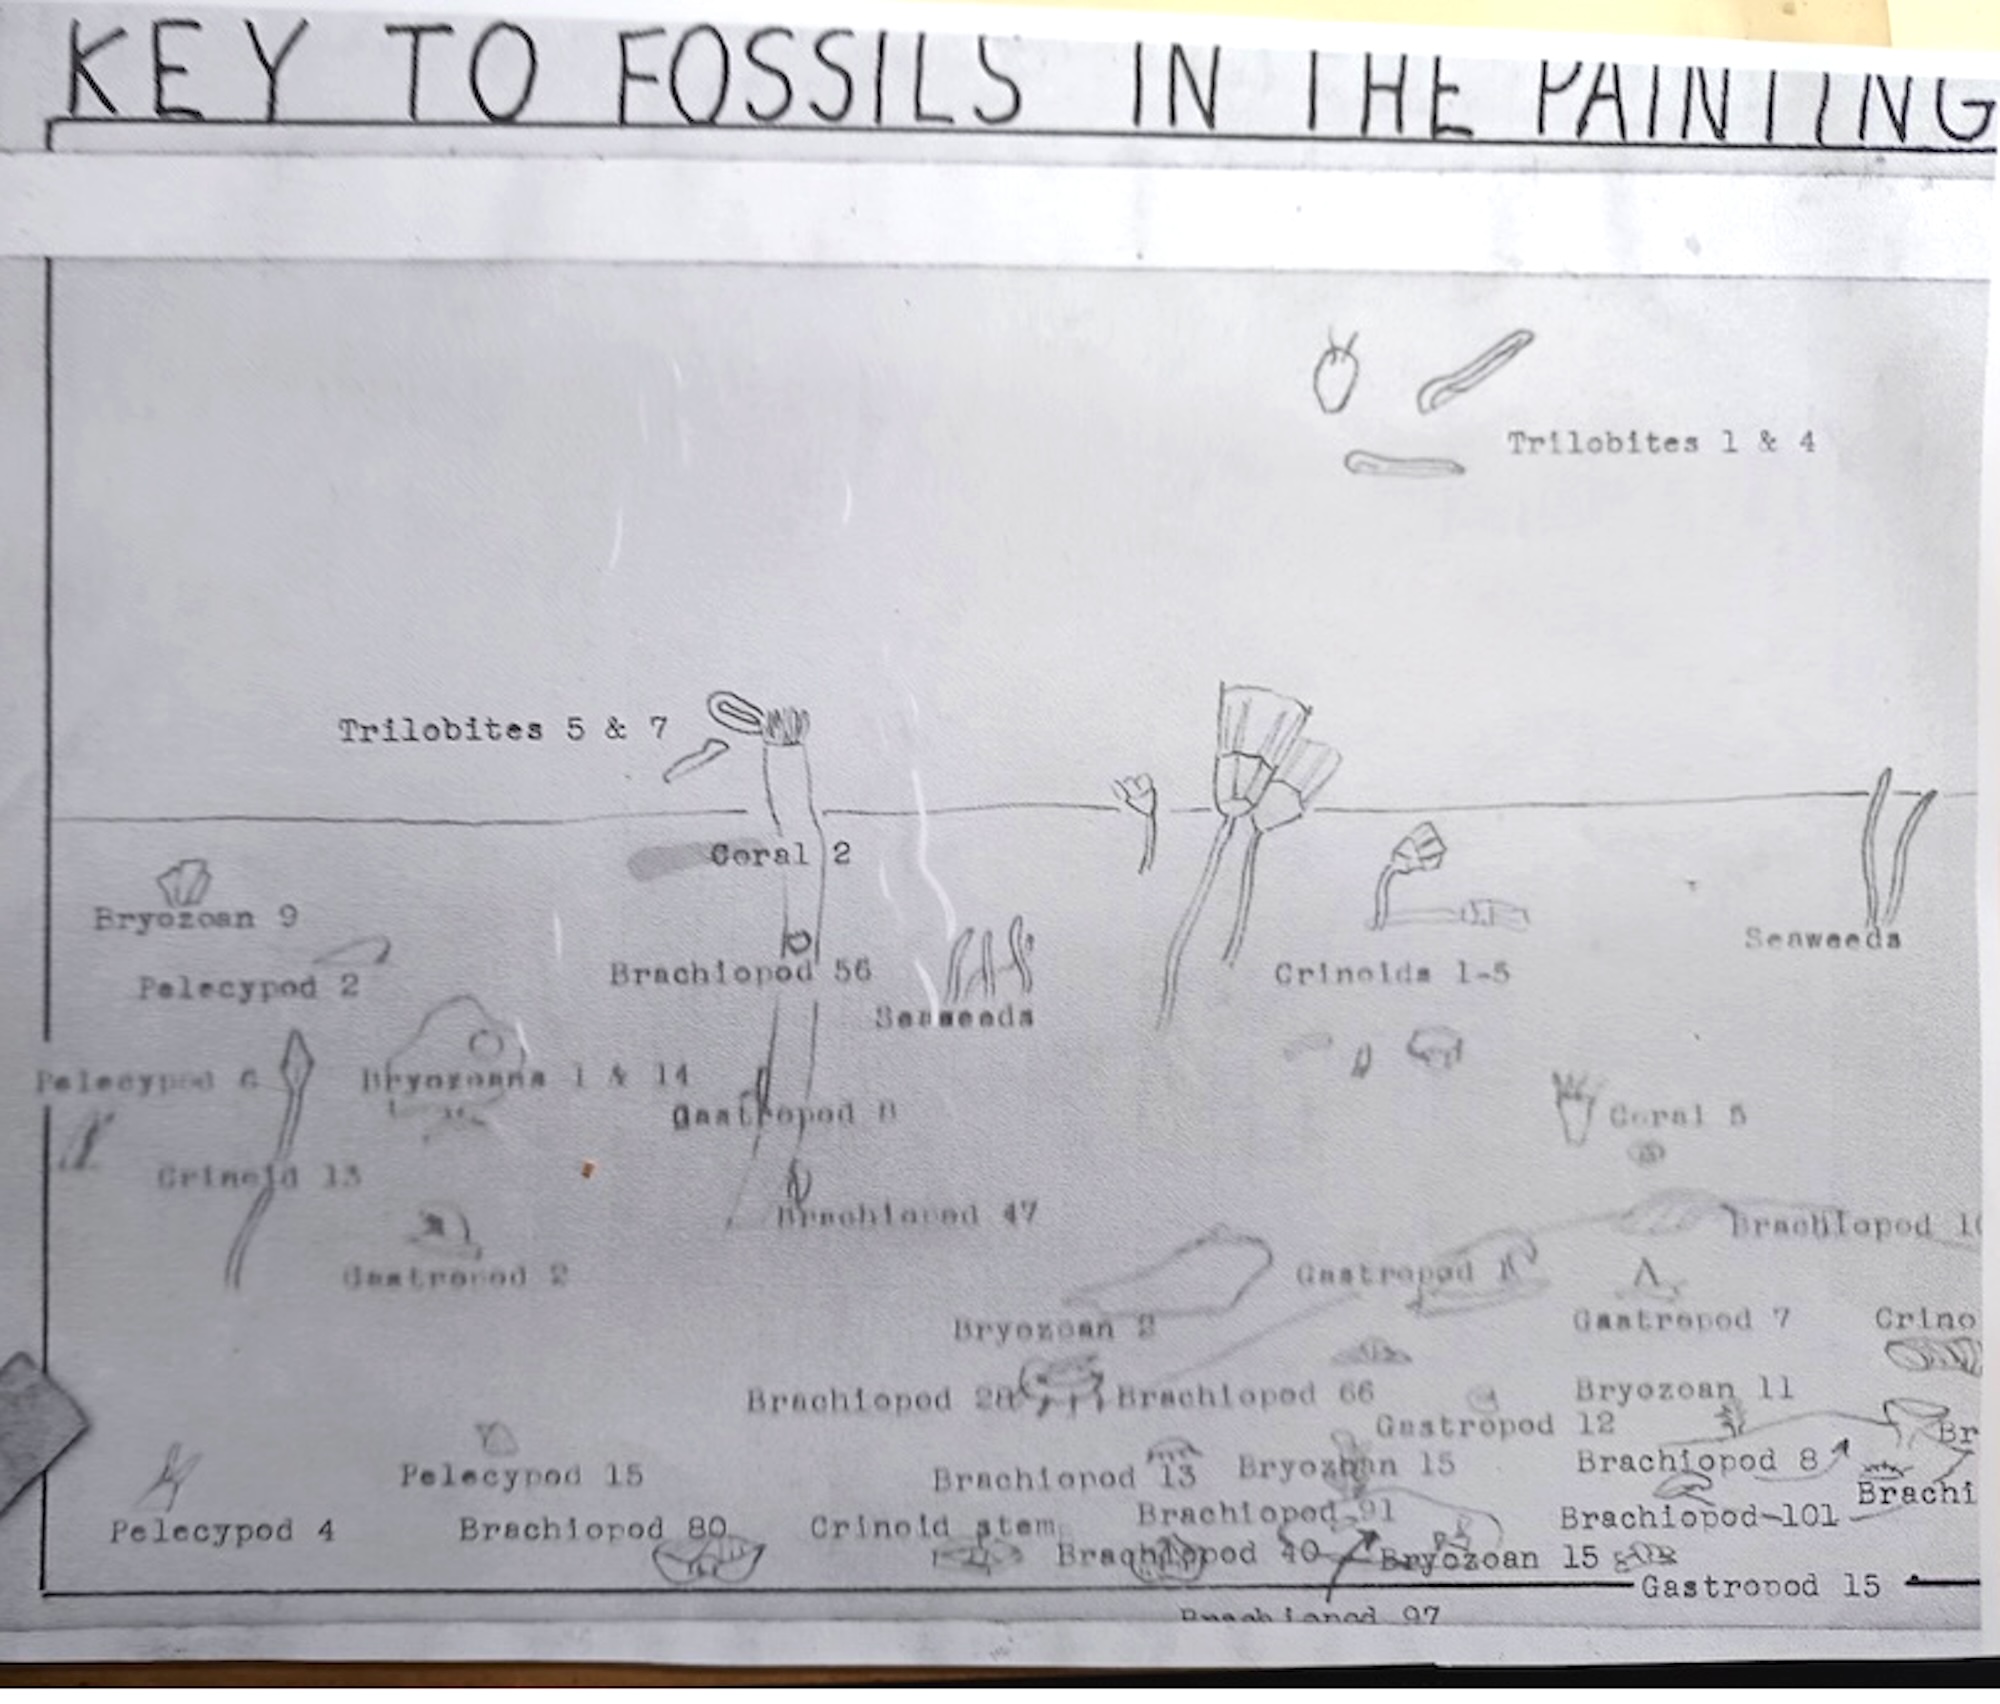 KEY TO FOSSILS IN THE PAINTING
Trilobites 1 & 4
Trilobites 5 & 7
Coral 2
Bryozoan 9
Seaweeds
Brachiopod 56
Crinoids 1-5
Pelecypod 2
Seaweeds
Pelecypod 6
Bryozoans 1 & 14
Gastropod 8
Coral 5
Crinoid 13
Brachiopod 47
Brachiopod
Gastropod 2
Gastropod
Gastropod 7
Crino
Bryozoan 2
Brachiopod 28
Brachiopod 66
Bryozoan 11
Gastropod 12
Br
Pelecypod 15
Brachiopod 13
Bryozoan 15
Brachiopod 8
Brachi
Pelecypod 4
Brachiopod 80
Crinoid stem
Brachiopod 91
Brachiopod-101
Brachiopod 40
Bryozoan 15
Gastropod 15
Brachiopod 97